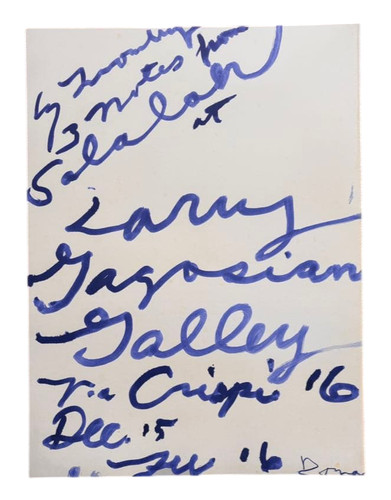 Cy Twombly
3 Notes from
Salalah
at
Larry
Gagosian
Galley
Via Crispi 16
Dec. 15
Feb 16
Roma